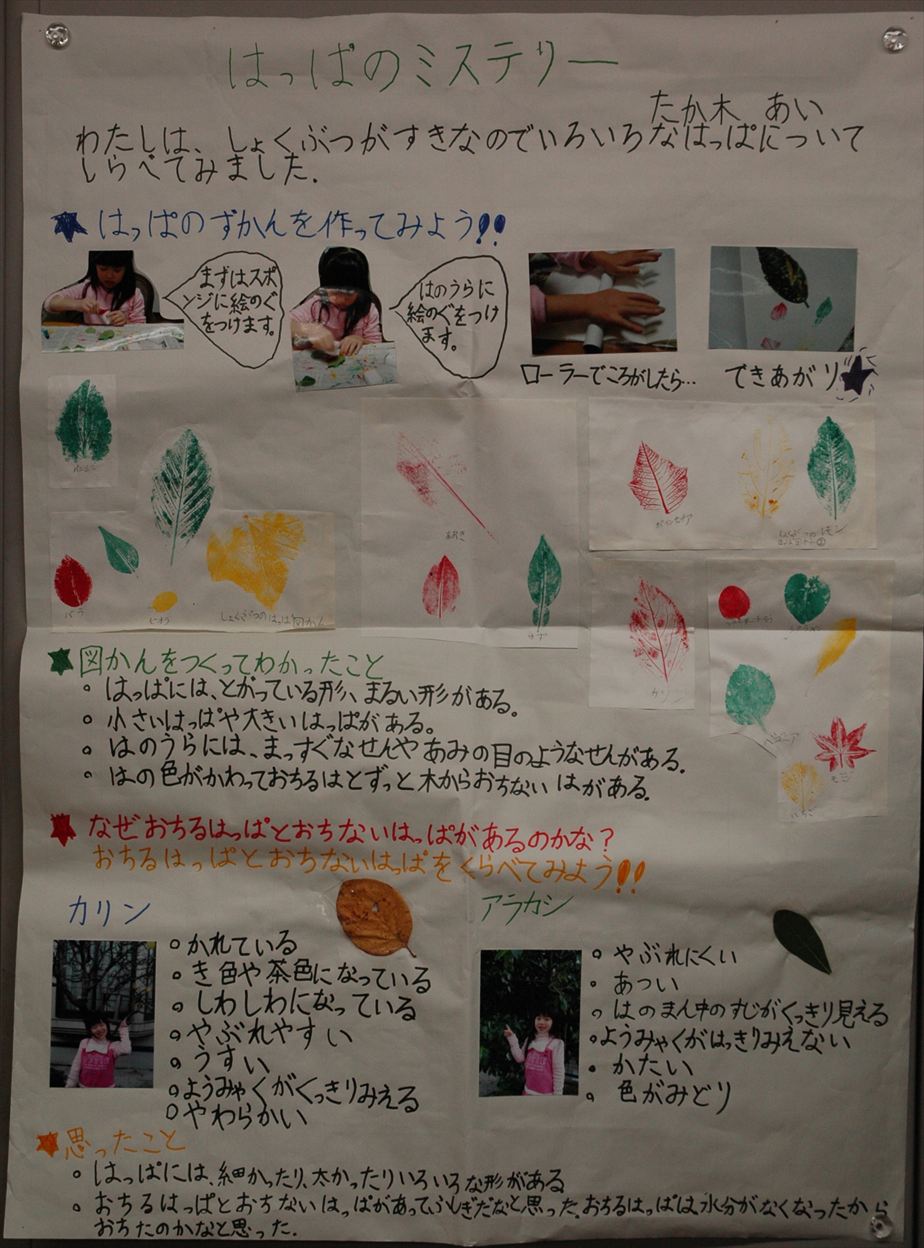 はっぱのミステリー
たか木 あい
わたしは、しょくぶつがすきなのでいろいろなはっぱについて
しらべてみました.
はっぱのずかんを作ってみよう!!
まずはスポ
ンジに絵のぐ
をつけます。
はのうらに
絵のぐをつけ
ます。
ローラーでころがしたら…
できあがり
バラ
ビオラ
しょくぶつのはっぱ図かん
ポインセチア
レモン
ゆず
カリン
モミジ
いちご
図かんをつくってわかったこと
。はっぱには、とがっている形、まるい形がある。
。小さいはっぱや大きいはっぱがある。
。はのうらには、まっすぐなせんやあみの目のようなせんがある。
。はの色がかわっておちるはとずっと木からおちないはがある。
なぜおちるはっぱとおちないはっぱがあるのかな?
おちるはっぱとおちないはっぱをくらべてみよう!!
カリン
。かれている
。き色や茶色になっている
。しわしわになっている
。やぶれやすい
。うすい
。ようみゃくがくっきりみえる
。やわらかい
アラカシ
。やぶれにくい
。あつい
。はのまん中のすじがくっきり見える
。ようみゃくがはっきりみえない
。かたい
。色がみどり
思ったこと
。はっぱには、細かったり、太かったりいろいろな形がある
。おちるはっぱとおちないはっぱがあってふしぎだなと思った。おちるはっぱは水分がなくなったから
おちたのかなと思った.